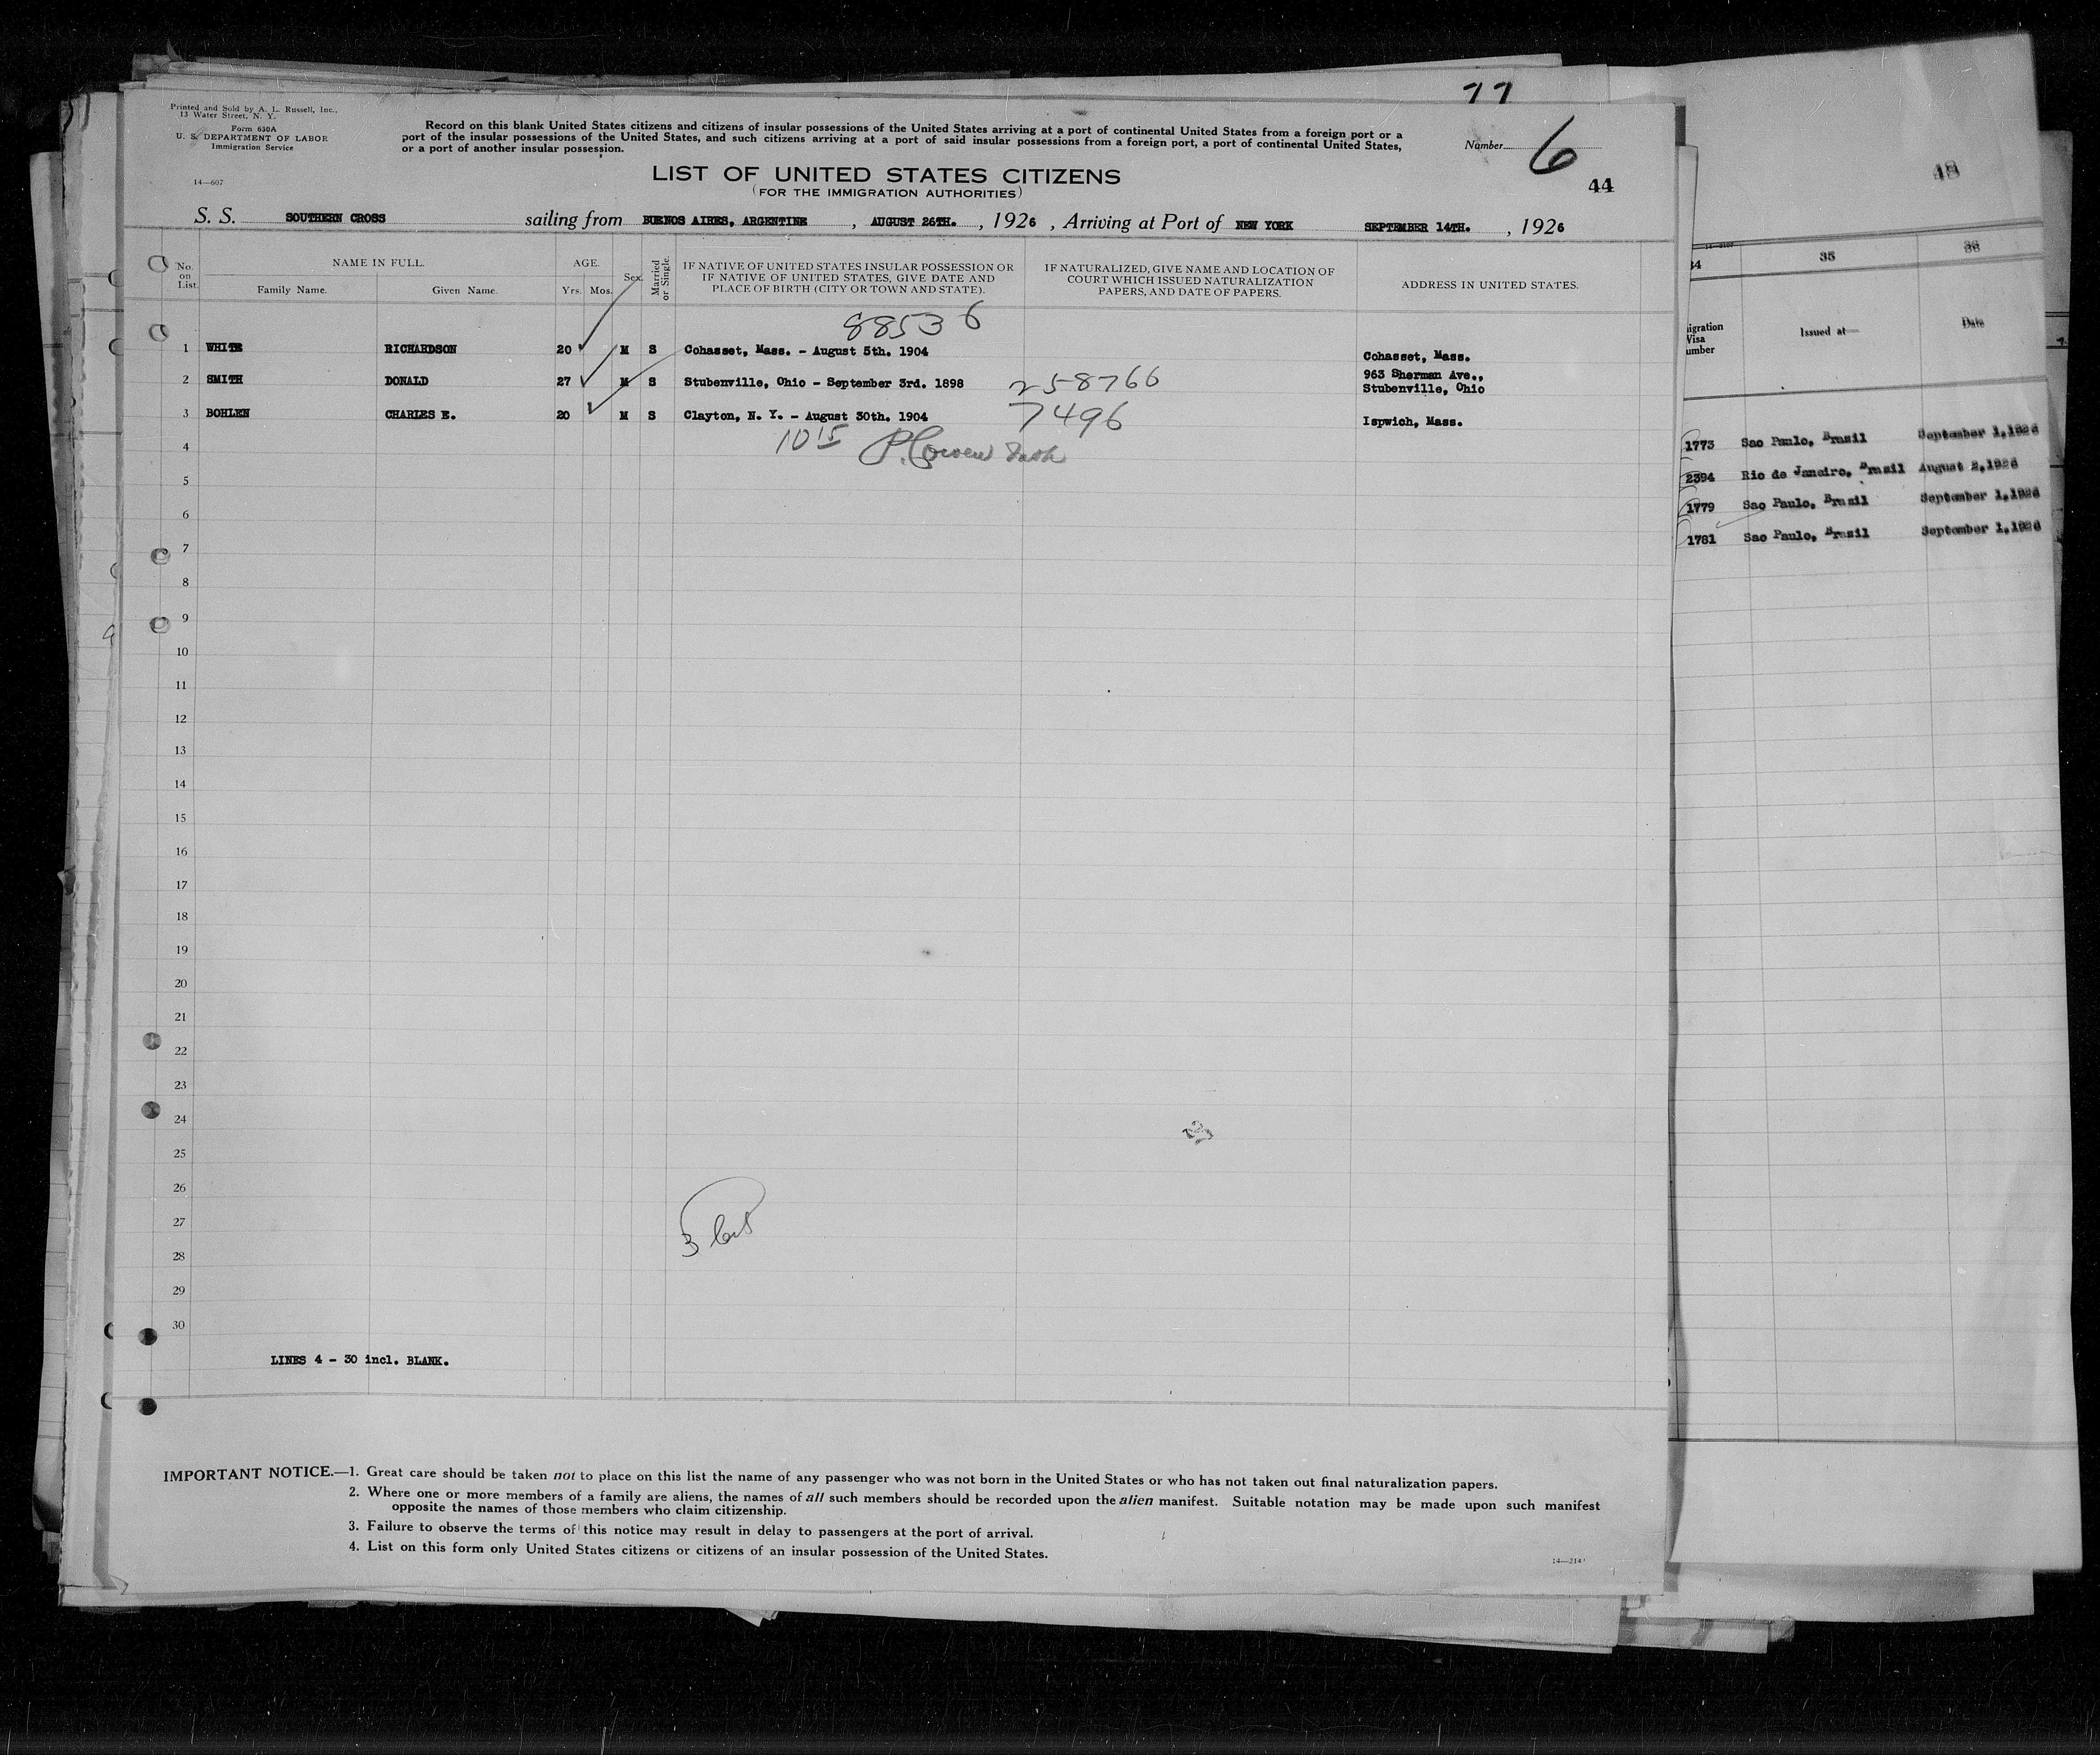 77
Printed and Sold by A. L. Russell, Inc.,
13 Water Street, N. Y.
Form 630A
U. S. DEPARTMENT OF LABOR
Immigration Service
14—607
Record on this blank United States citizens and citizens of insular possessions of the United States arriving at a port of continental United States from a foreign port or a
port of the insular possessions of the United States, and such citizens arriving at a port of said insular possessions from a foreign port, a port of continental United States,
or a port of another insular possession.
Number 6
44
LIST OF UNITED STATES CITIZENS
(FOR THE IMMIGRATION AUTHORITIES)
S. S. SOUTHERN CROSS sailing from BUENOS AIRES, ARGENTINE, AUGUST 26TH., 1926, Arriving at Port of NEW YORK SEPTEMBER 14TH., 1926
No. on List. NAME IN FULL. Family Name. Given Name. AGE. Yrs. Mos. Sex. Married or Single. IF NATIVE OF UNITED STATES INSULAR POSSESSION OR IF NATIVE OF UNITED STATES, GIVE DATE AND PLACE OF BIRTH (CITY OR TOWN AND STATE). IF NATURALIZED, GIVE NAME AND LOCATION OF COURT WHICH ISSUED NATURALIZATION PAPERS, AND DATE OF PAPERS. ADDRESS IN UNITED STATES.
88536
1 WHITE RICHARDSON 20 M S Cohasset, Mass. - August 5th. 1904 Cohasset, Mass.
2 SMITH DONALD 27 M S Stubenville, Ohio - September 3rd. 1898 258766 963 Sherman Ave.,
Stubenville, Ohio
3 BOHLEN CHARLES E. 20 M S Clayton, N. Y. - August 30th. 1904 7496 Ispwich, Mass.
4 10 15
5
6
7
8
9
10
11
12
13
14
15
16
17
18
19
20
21
22
23
24
25
26
27
28
29
30
LINES 4 - 30 incl. BLANK.
IMPORTANT NOTICE.—1. Great care should be taken not to place on this list the name of any passenger who was not born in the United States or who has not taken out final naturalization papers.
2. Where one or more members of a family are aliens, the names of all such members should be recorded upon the alien manifest. Suitable notation may be made upon such manifest
opposite the names of those members who claim citizenship.
3. Failure to observe the terms of this notice may result in delay to passengers at the port of arrival.
4. List on this form only United States citizens or citizens of an insular possession of the United States.
14—214
48
34 35 36
igration
Visa
umber
Issued at
Date
1773 Sao Paulo, Brasil September 1,1926
2394 Rio de Janeiro, Brasil August 2,1926
1779 Sao Paulo, Brasil September 1,1926
1781 Sao Paulo, Brasil September 1,1926